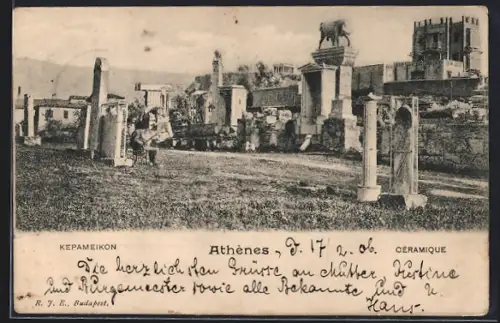 ΚΕΡΑΜΕΙΚΟΝ Athènes, D. 17 2. 06. CÉRAMIQUE
Die herzlichsten Grüsse an Mutter, Kristine
und Bürgermeister sowie alle Bekannte, sind u.
Hans.
R. J. E., Budapest.